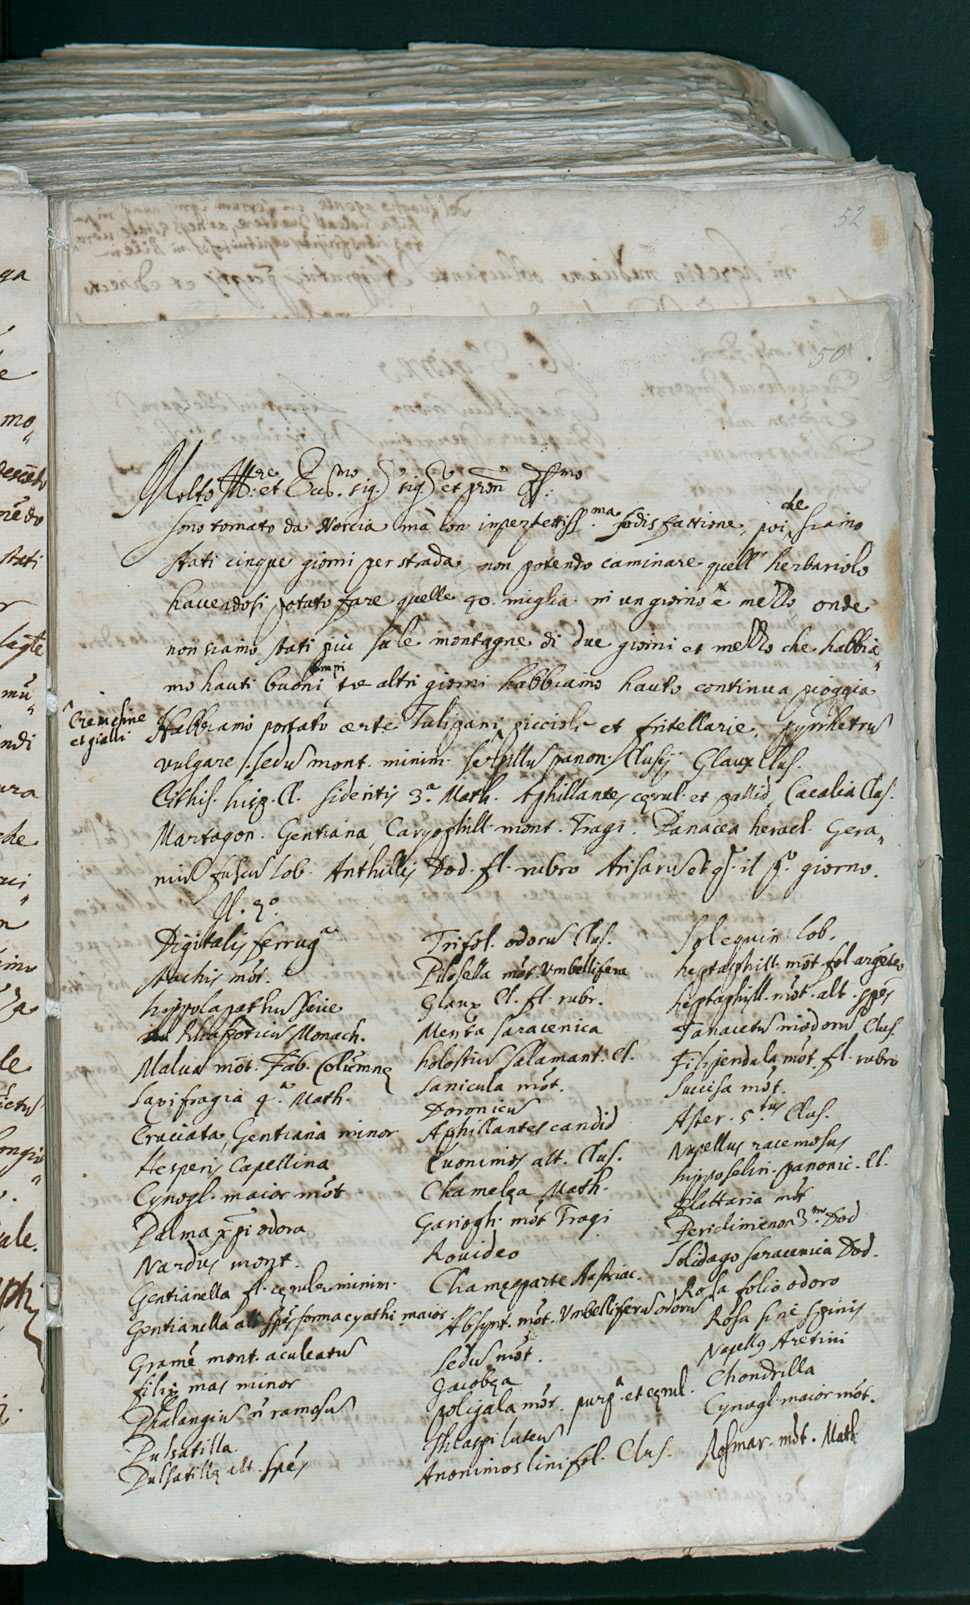 52
50
Molto Ill.re et Ecc.mo sig.r sig.r et pron oss.mo
sono tornato da Norcia mà con inperfettiss.ma sodisfattione, poi che siamo
stati cinque giorni per strada, non potendo caminare quell' herbariolo
havendosi potuto fare quelle 40. miglia in un giorno è mezzo onde
non siamo stati più su le montagne di due giorni et mezzo che habbia-
mo hauti buoni tempi tre altri giorni habbiamo hauto continua pioggia
Cremesine
et gialli
Habbiamo portato certe Tulipani piccioli et fritellarie, pyrrhetru
vulgare. sedu mont. minim. serpillu panon. Clusij, Glaux Clus.
Cithis. hisp. Cl. sideritis 3.a Math. Aphillantes cęrul. et pallid. Cacalia Clus.
Martagon. Gentiana, Caryophill. mont. Tragi. Panacea heracl. Gera-
niu fuscu Lob. Anthillis Dod. fl. rubro Arisaru et qsto il po. giorno.
Il 2o.
Digitalis ferruga
stachis mót.
hippolapathu sive
Rhaponticu Monach.
Malva mót. Fab. Columnę
saxifragia 4.a Math.
Cruciata, Gentiana minor
Hesperis Capellina
Cynogl. maior mót
Palma xpi odora
Nardus mont.
Gentianella fl. cęruleo minim.
Gentianella alt. spés forma cyathi maior
Gramé mont. aculeatu
filix mas minor
Phalangiu ñ ramosu
Pulsatilla
Pulsatillę alt. spés
Trifol. odoru Clus.
Pilosella mót. Umbellifera
Glaux Cl. fl. rubr.
Menta saracenica
holostiu salamant. Cl.
sanicula mót.
Doronicu
Aphillantes candid
Euonimos alt. Clus.
Chamelęa Math.
Gariogh. mót Tragi
Rovideo
Chamęsparte Austriac.
Absynt. mót. Umbelliferu odoru
sedu mót.
Jacobęa
poligala mót. purp.a et cęrul.
thlaspi luteu
Anonimos linifol. Clus.
sol equin. Lob.
heptaphill. mót fol argéteo
heptaphill. mót. alt. spés
Tanacetu inodoru Clus
Filipendula mót fl. rubro
succisa mót.
Aster. 5.tus Clus.
Napellus racemosus
hipposelin. panonic. Cl.
blattaria mót
Periclimenon 3.um Dod
solidago saracenica Dod.
Rosa folio odoro
Rosa sine spinis
Napell9 Aretini
Chondrilla
Cynogl. maior mót.
Rosmar. mót. Math